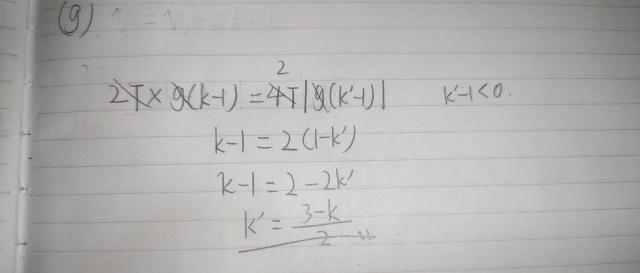 (g)
2T × g(k-1) = 4T |g(k'-1)| k'-1<0.
2
k-1 = 2(1-k')
k-1 = 2-2k'
k' = (3-k)/2 〃